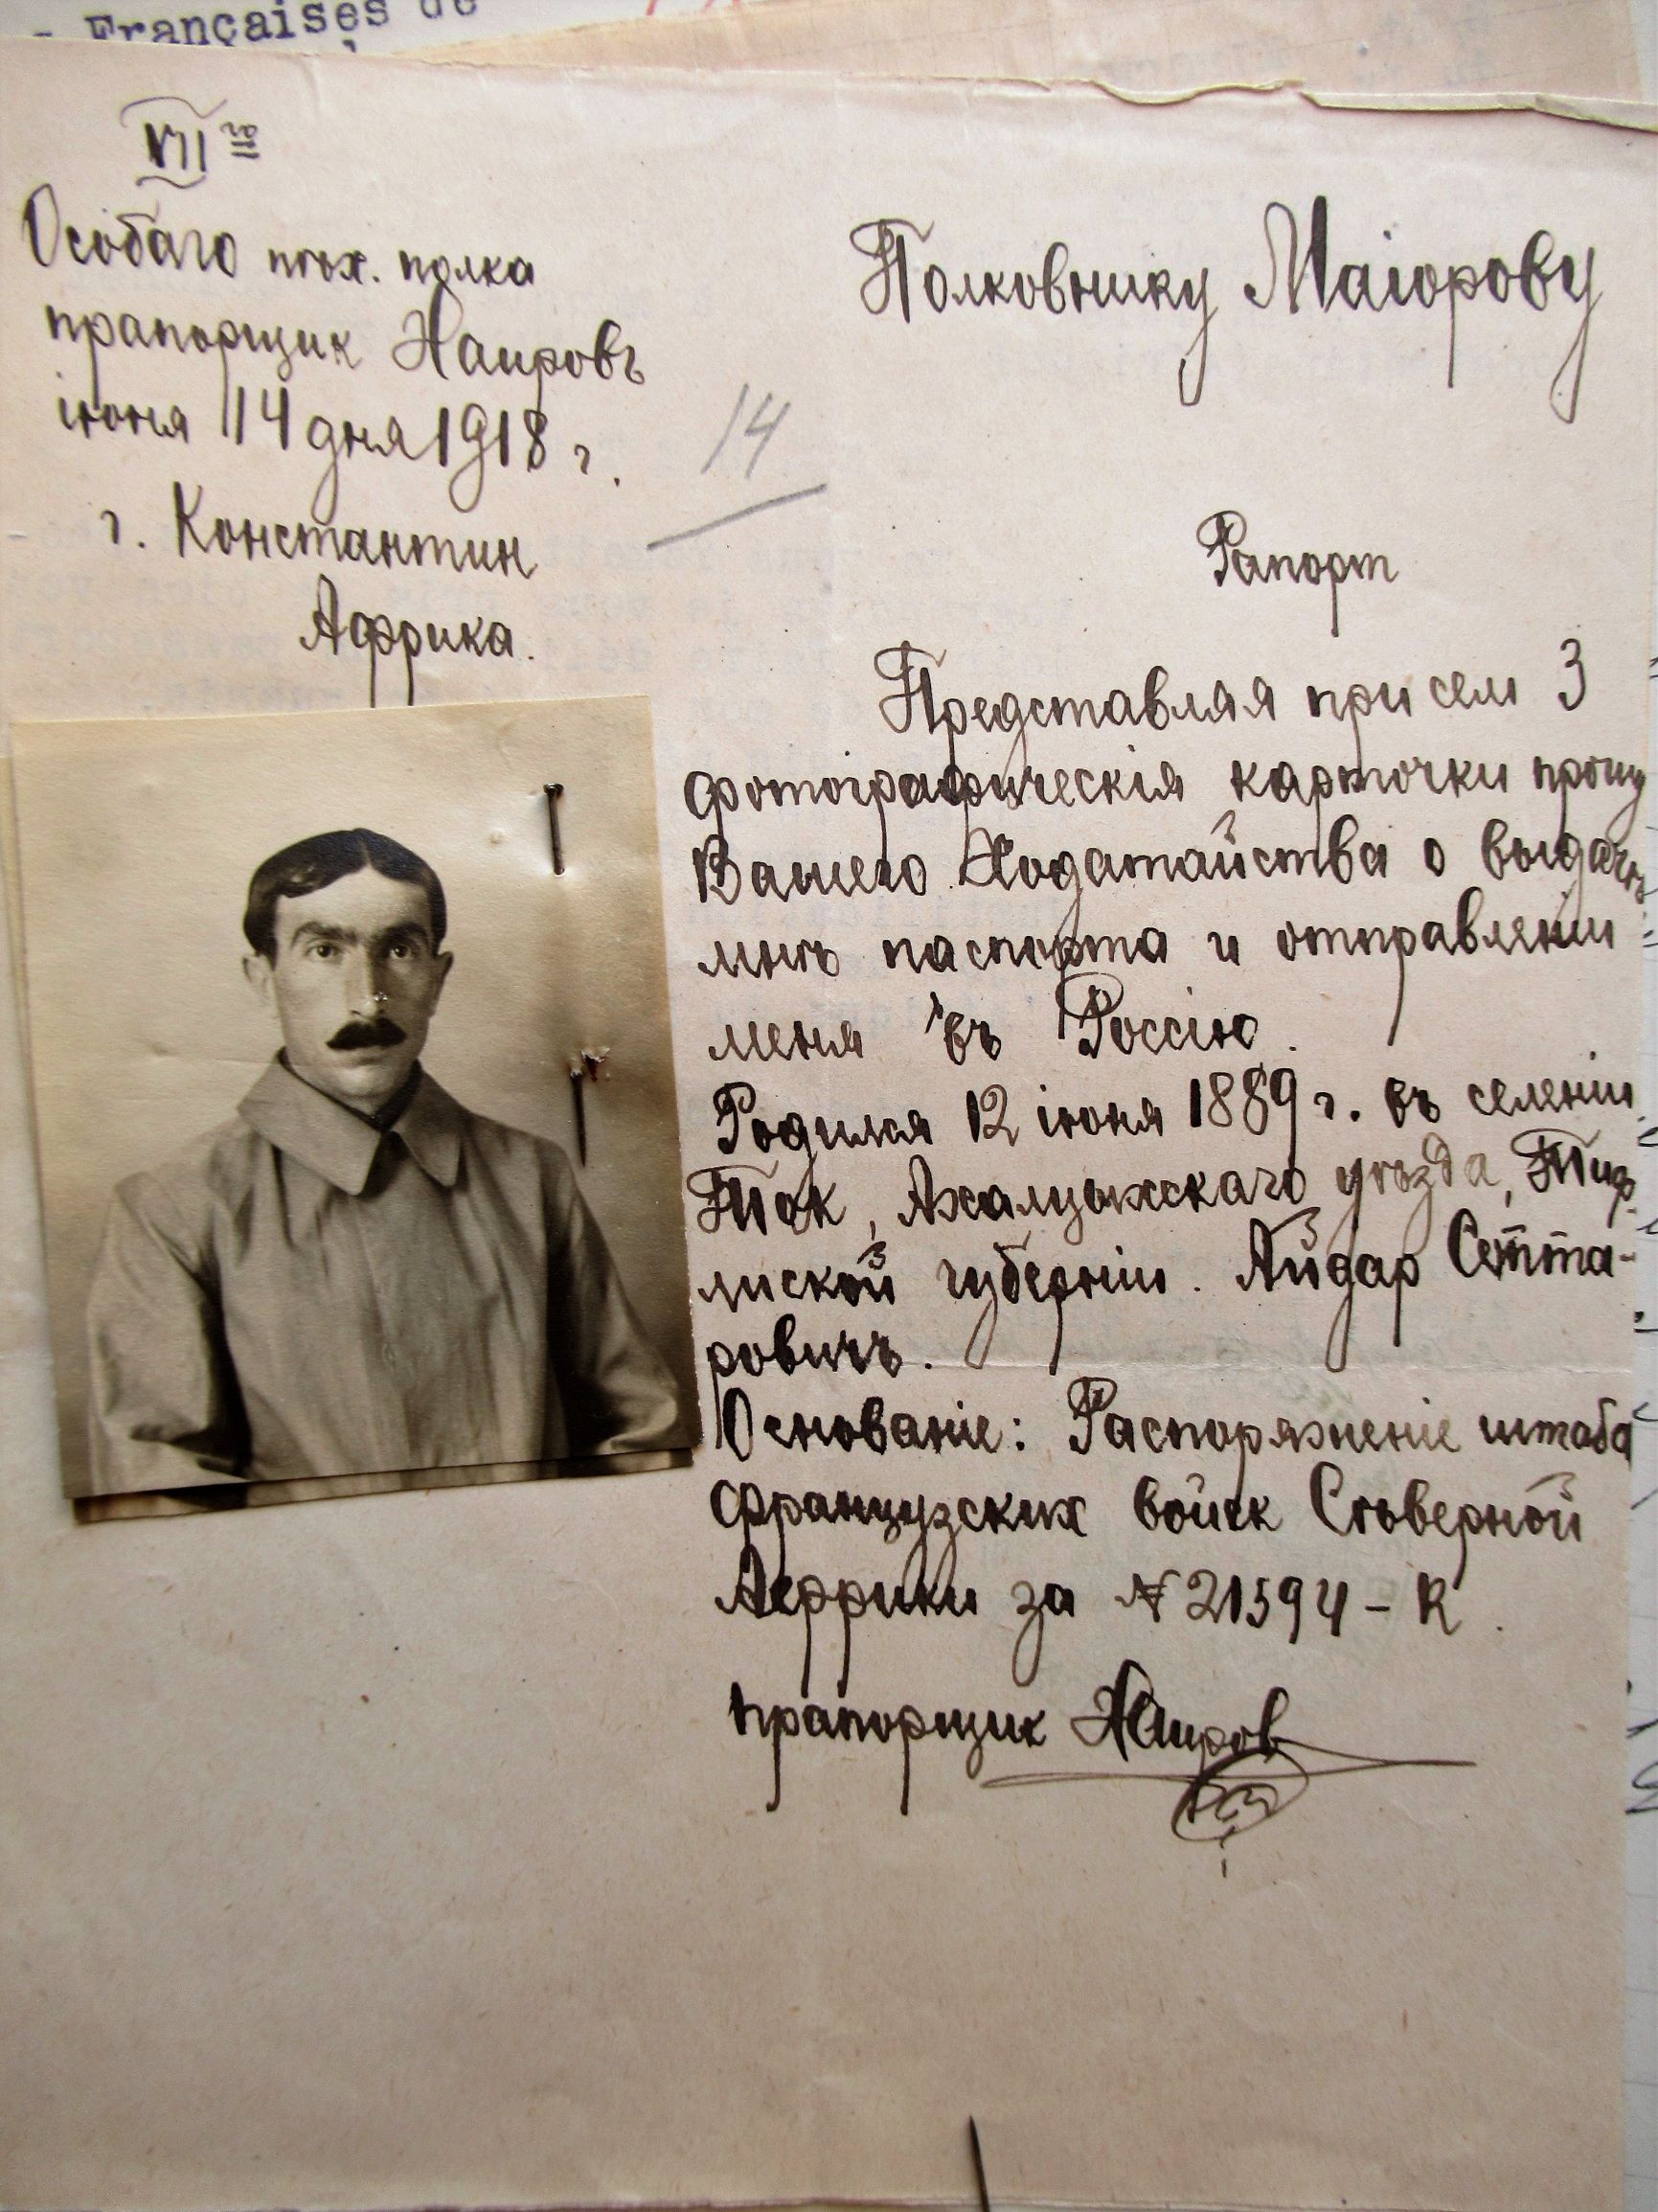 - Françaises de
VII го
Особаго пѣх. полка
прапорщик Наировъ
іюня 14 дня 1918 г.
г. Константин
Африка.
14
Полковнику Маіорову
Рапорт
Представляя при сем 3
фотографическія карточки прошу
Вашего Ходатайства о выдачѣ
мнѣ паспорта и отправленіи
меня въ Россію.
Родился 12 іюня 1889 г. въ селеніи
Ток, Ахалцыхскаго уѣзда, Тиф-
лиской губерніи. Айдар Сетта-
ровичъ.
Основаніе: Распоряженіе штаба
французских войск Сѣверной
Африки за № 21594 - К.
прапорщик Наиров